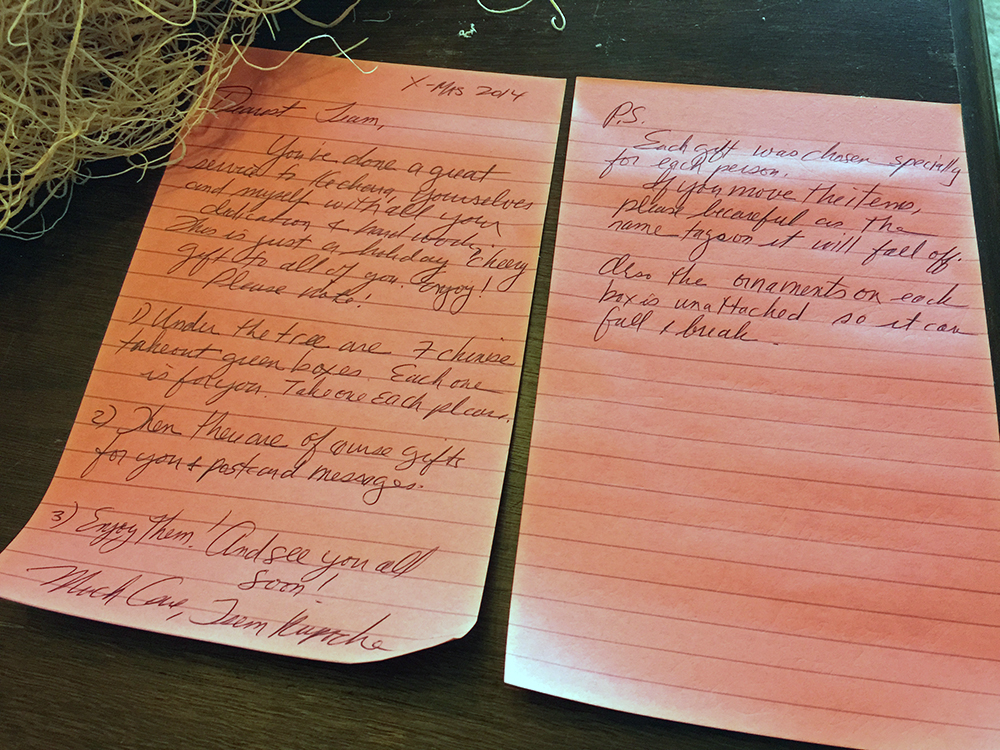 X-Mas 2014
Dearest Team,
You've done a great
service to Kechara, yourselves
and myself with all your
dedication & hard work.
This is just a holiday cheery
gift to all of you. Enjoy!
Please note!
1) Under the tree are 7 chinese
takeout green boxes. Each one
is for you. Take one each please.
2) Then they are of course gifts
for you & postcard messages.
3) Enjoy them! And see you all
soon!
Much Care, Tsem Rinpoche
P.S.
Each gift was chosen specially
for each person.
If you move the items,
please be careful as the
name tags on it will fall off.
Also the ornaments on each
box is unattached so it can
fall & break.